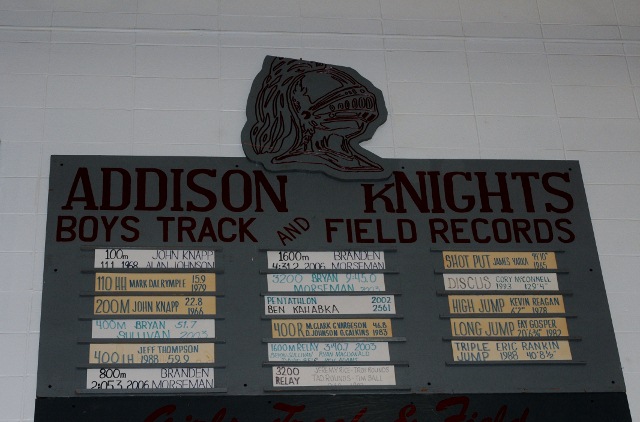 ADDISON KNIGHTS
BOYS TRACK AND FIELD RECORDS
100m JOHN KNAPP
11.1 1968 ALAN JOHNSON
110 HH MARK DALRYMPLE 15.9
1979
200M JOHN KNAPP 22.8
1966
400M BRYAN 51.7
SULLIVAN 2003
400 IH JEFF THOMPSON
1988 59.9
800m BRANDEN
2:05.3 2006 MORSEMAN
1600m BRANDEN
4:31.2 2006 MORSEMAN
3200 BRANDEN
MORSEMAN
PENTATHLON 2002
BEN 2561
400R M.CLARK C.VARGESON 46.8
D.JOHNSON G.CALKINS 1983
1600M RELAY 2003
BRYAN SULLIVAN RYAN MACDONALD
3200 JEREMY RICE-TROY ROUNDS
RELAY TAD ROUNDS-TIM BALL
SHOT PUT JAMES 1965
DISCUS CORY McCONNELL
1993 129'4"
HIGH JUMP KEVIN REAGAN
6'2" 1978
LONG JUMP FAY GOSPER
1982
TRIPLE ERIC RANKIN
JUMP 1988 40'8½"
Girls Track & Field